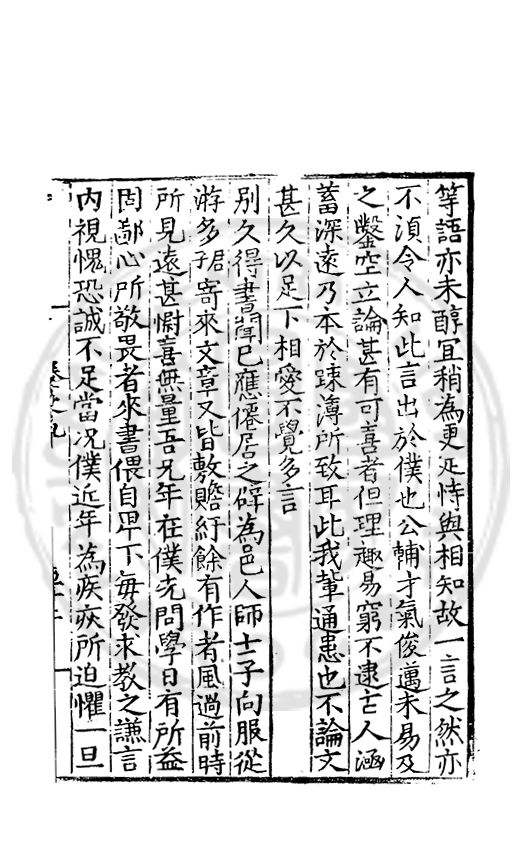 等語亦未醇宜稍為更定恃與相知故一言之然亦
不湏令人知此言出於僕也公輔才氣俊邁未易及
之鑿空立論甚有可喜者但理趣易窮不逮古人涵
蓄深遠乃本於踈薄所致耳此我軰通患也不論文
甚久以足下相愛不覺多言
別久得書聞已應僊居之辟為邑人師士子向服從
游多裙寄來文章又皆敷贍紆餘有作者風過前時
所見遠甚慰喜無量吾兄年在僕先問學日有所益
固鄙心所敬畏者來書偎自卑下每發求教之謙言
内視愧恐誠不足當况僕近年為疾疢所迫懼一旦